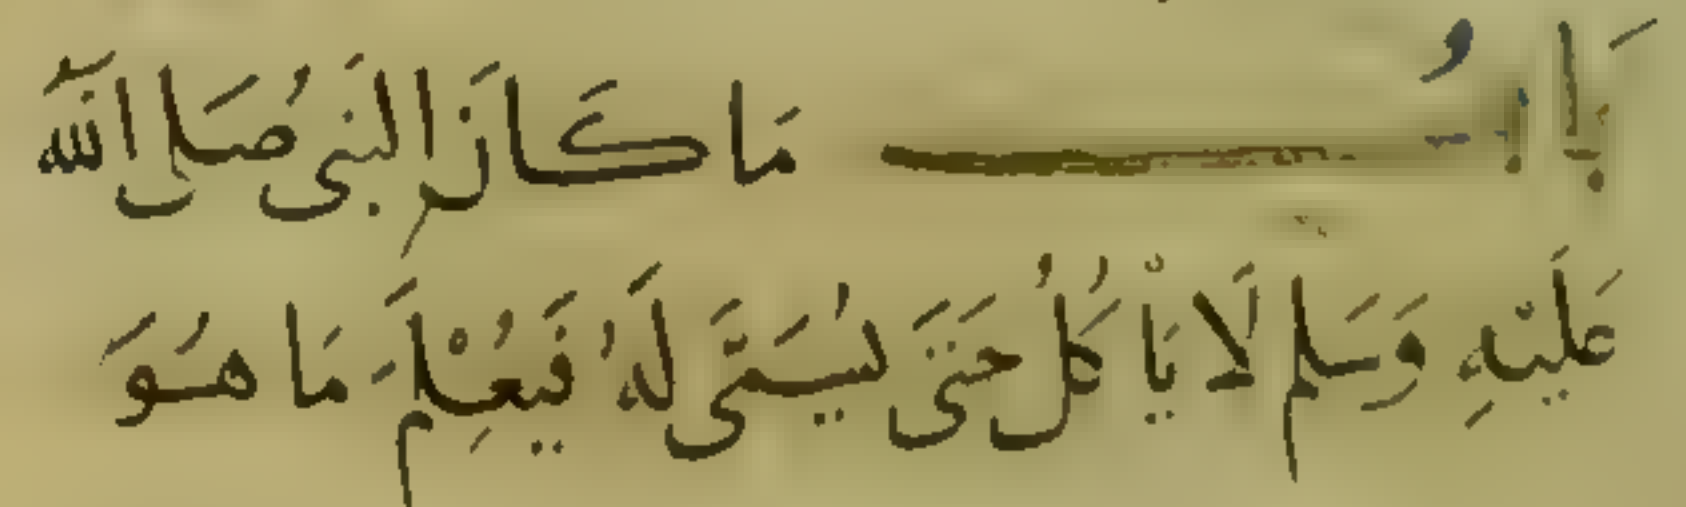 بَابُ مَا كَانَ النَّبِيُّ صَلَّى اللَّهُ
عَلَيْهِ وَسَلَّمَ لَا يَأْكُلُ حَتَّى يُسَمَّى لَهُ فَيَعْلَمَ مَا هُوَ